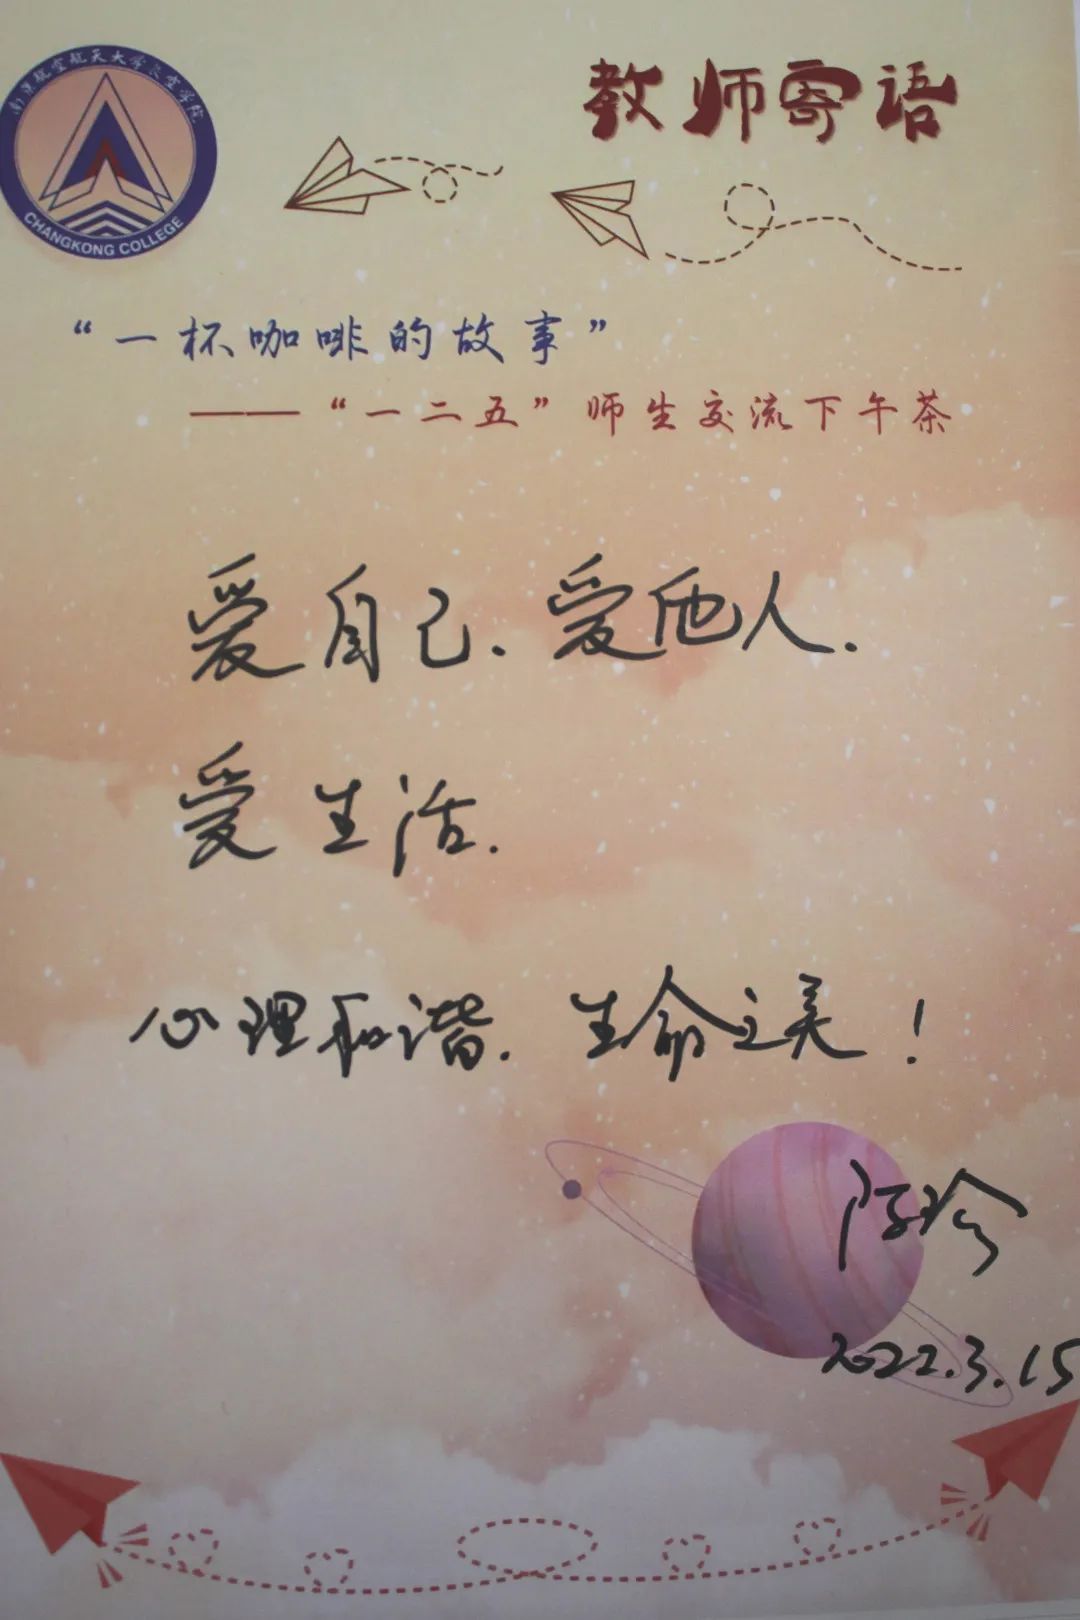 南京航空航天大学长空学院
CHANGKONG COLLEGE
教师寄语
“一杯咖啡的故事”
——“一二五”师生交流下午茶
爱自己.爱他人.
爱生活.
心理和谐.生命之美!
陈珍
2022.3.15